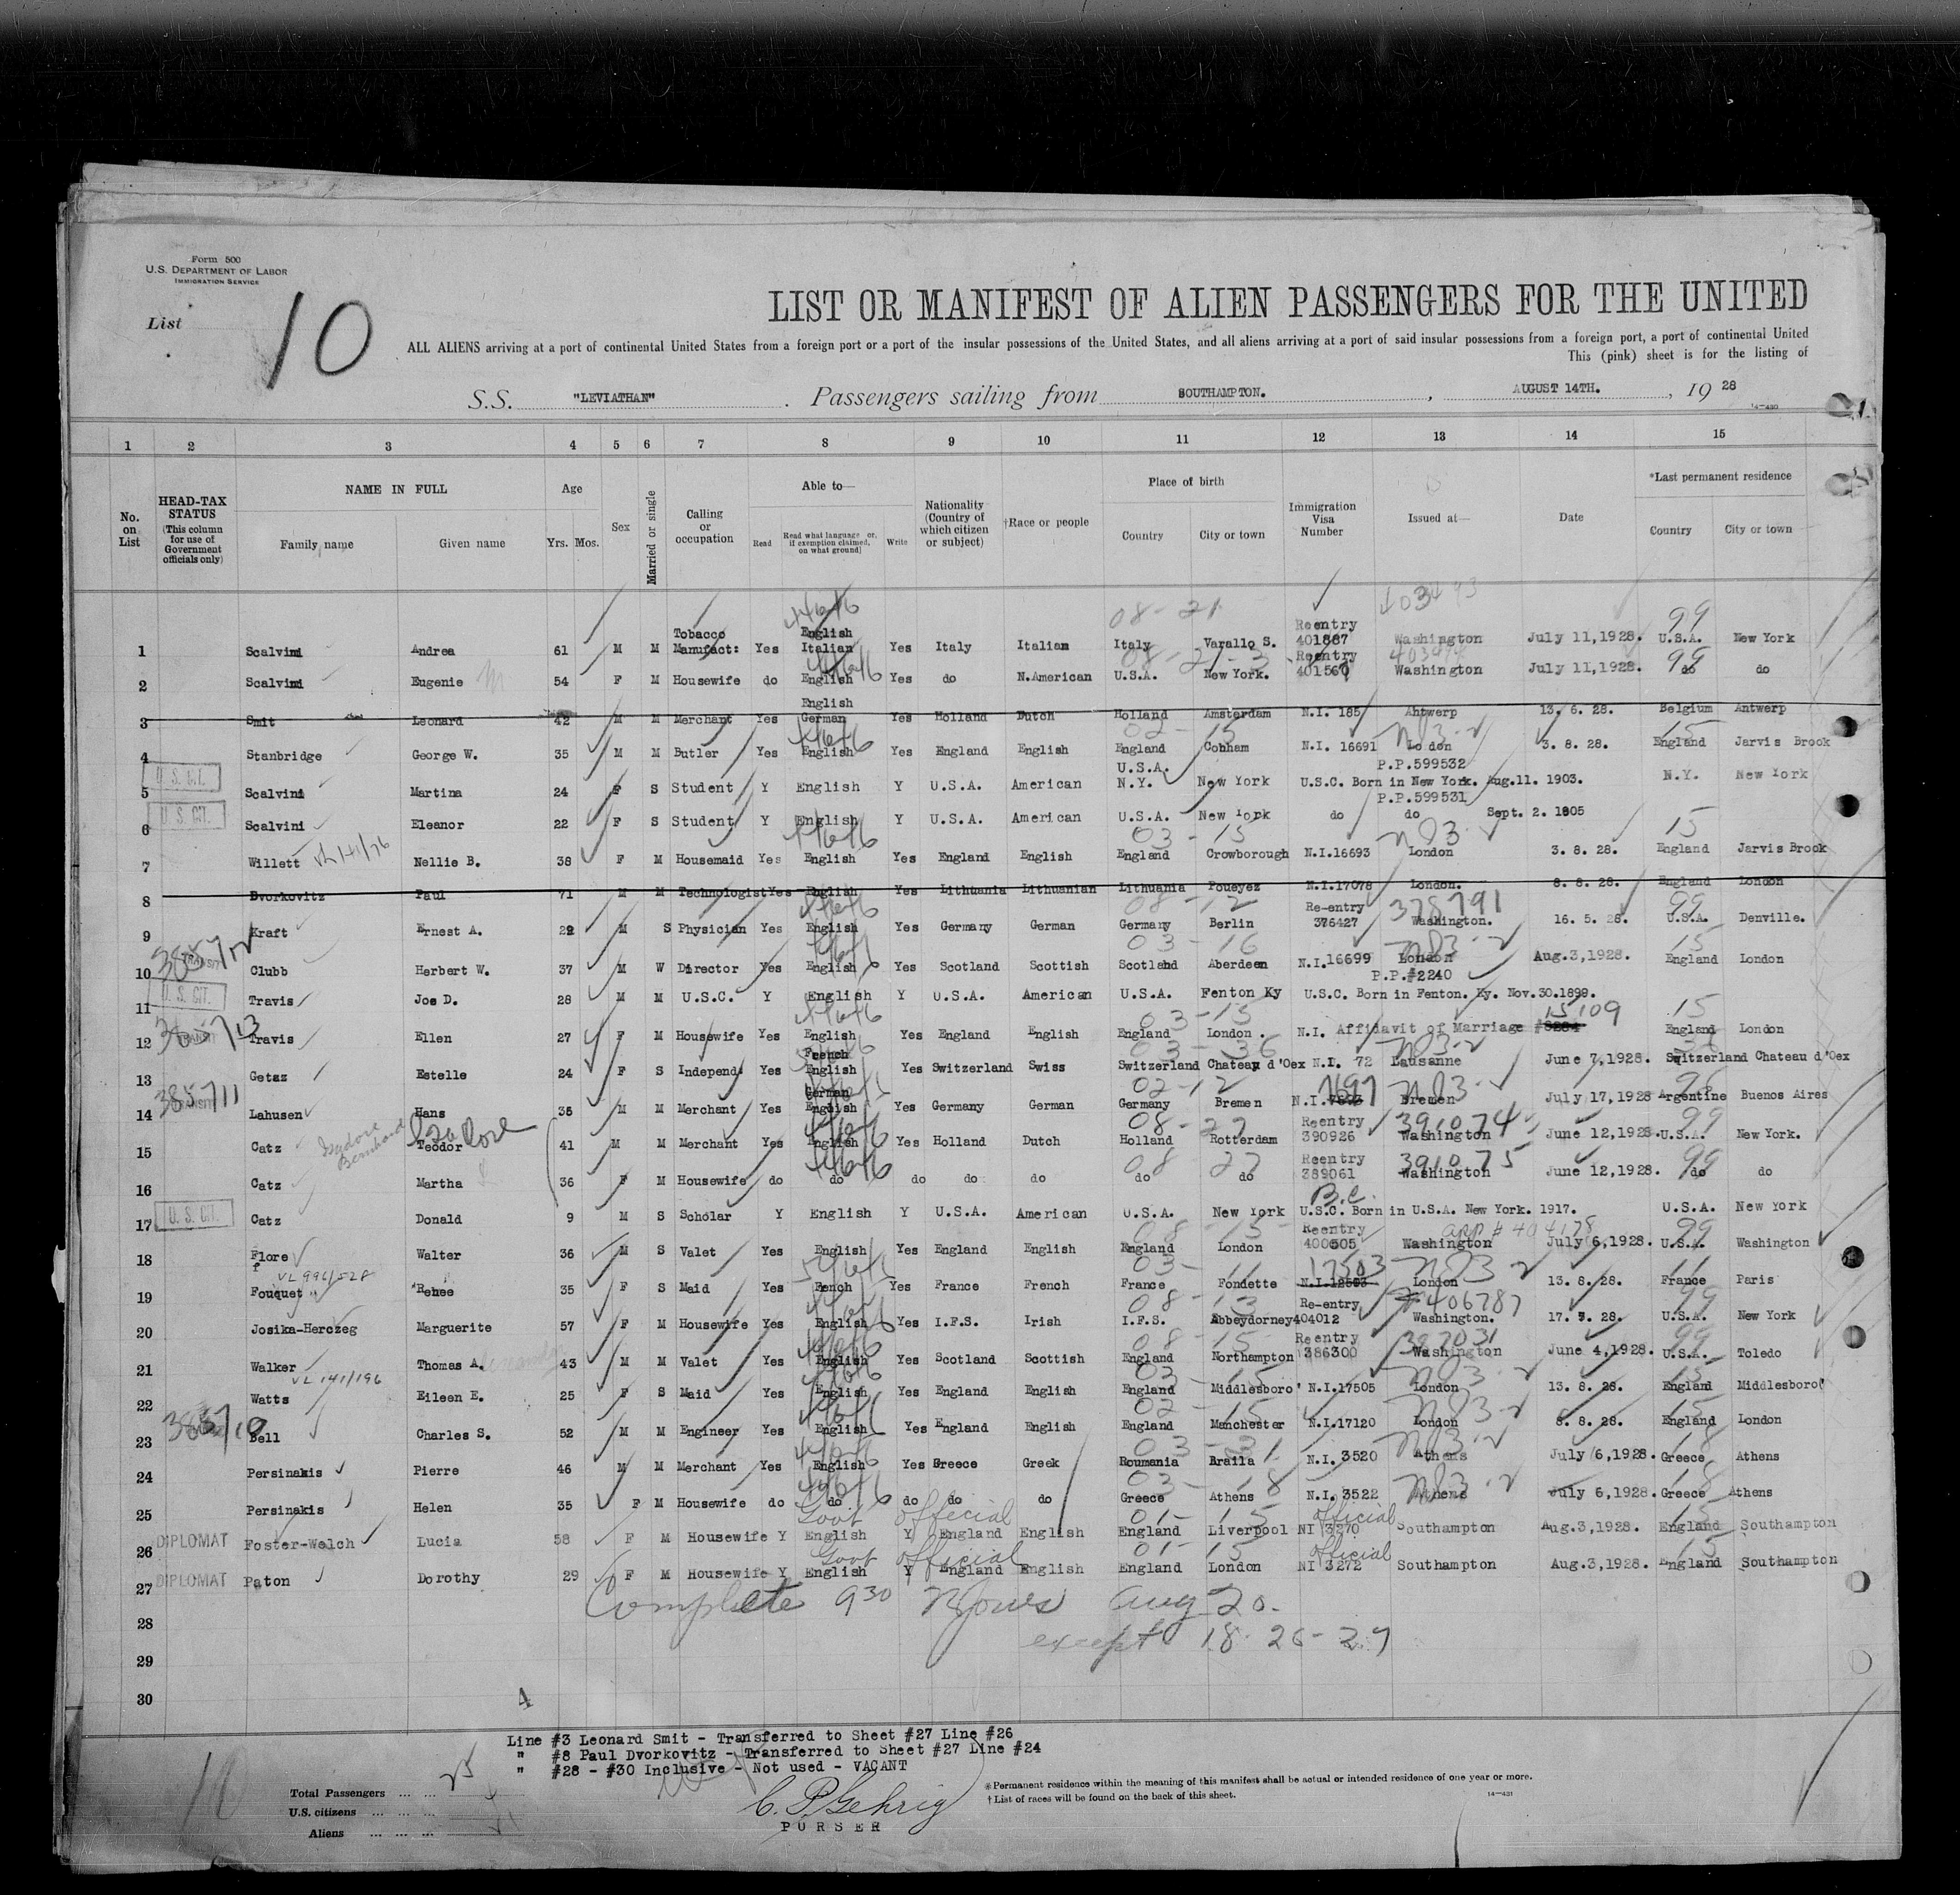 Form 500
U.S. DEPARTMENT OF LABOR
IMMIGRATION SERVICE
List 10
LIST OR MANIFEST OF ALIEN PASSENGERS FOR THE UNITED
ALL ALIENS arriving at a port of continental United States from a foreign port or a port of the insular possessions of the United States, and all aliens arriving at a port of said insular possessions from a foreign port, a port of continental United
This (pink) sheet is for the listing of
S.S. "LEVIATHAN" . Passengers sailing from SOUTHAMPTON. , AUGUST 14TH. , 19 28
14-430
1 2 3 4 5 6 7 8 9 10 11 12 13 14 15
No. on List
HEAD-TAX STATUS (This column for use of Government officials only)
NAME IN FULL
Family name Given name
Age
Yrs. Mos.
Sex
Married or single
Calling or occupation
Able to—
Read Read what language or, if exemption claimed, on what ground] Write
Nationality (Country of which citizen or subject)
†Race or people
Place of birth
Country City or town
Immigration Visa Number
Issued at—
Date
*Last permanent residence
Country City or town
1 Scalvini Andrea 61 M M Tobacco Manufact: Yes English Italian Yes Italy Italian Italy Varallo S. Reentry 401887 Washington July 11,1928. U.S.A. New York
2 Scalvini Eugenie 54 F M Housewife do English Yes do N.American U.S.A. New York. Reentry 401560 Washington July 11,1928. do do
3 Smit Leonard 42 M M Merchant Yes English German Yes Holland Dutch Holland Amsterdam N.I. 185 Antwerp 13. 6. 28. Belgium Antwerp
4 Stanbridge George W. 35 M M Butler Yes English Yes England English England Cobham N.I. 16691 Lo don 3. 8. 28. England Jarvis Brook
5 U. S. CIT. Scalvini Martina 24 F S Student Y English Y U.S.A. American U.S.A. N.Y. New York P.P.599532 U.S.C. Born in New York. Aug.11. 1903. N.Y. New York
6 U. S. CIT. Scalvini Eleanor 22 F S Student Y English Y U.S.A. American U.S.A. New York P.P.599531 do do Sept. 2. 1805
7 Willett Nellie B. 38 F M Housemaid Yes English Yes England English England Crowborough N.I.16693 London 3. 8. 28. England Jarvis Brook
8 Dvorkovitz Paul 71 M M Technologist Yes English Yes Lithuania Lithuanian Lithuania Poueyez N.I.17078 London. 8. 8. 28. England London
9 Kraft Ernest A. 29 M S Physician Yes English Yes Germany German Germany Berlin Re-entry 376427 378791 Washington. 16. 5. 28. U.S.A. Denville.
10 TRANSIT Clubb Herbert W. 37 M W Director Yes English Yes Scotland Scottish Scotland Aberdeen N.I.16699 London Aug.3,1928. England London
11 U. S. CIT. Travis Joe D. 28 M M U.S.C. Y English Y U.S.A. American U.S.A. Fenton Ky P.P.#2240 U.S.C. Born in Fenton. Ky. Nov.30.1899.
12 TRANSIT Travis Ellen 27 F M Housewife Yes English Yes England English England London. N.I. Affidavit of Marriage 15109 England London
13 Getaz Estelle 24 F S Independ: Yes French English Yes Switzerland Swiss Switzerland Chateau d'Oex N.I. 72 Lausanne June 7,1928. Switzerland Chateau d'Oex
14 385711 TRANSIT Lahusen Hans 35 M M Merchant Yes German English Yes Germany German Germany Bremen N.I. 7697 Bremen July 17,1928 Argentine Buenos Aires
15 Catz Isydore Bernhard Teodor 41 M M Merchant Yes English Yes Holland Dutch Holland Rotterdam Reentry 390926 391074 Washington June 12,1928. U.S.A. New York.
16 Catz Martha 36 F M Housewife do do do do do do do Reentry 389061 391075 Washington June 12,1928. do do
17 U. S. CIT. Catz Donald 9 M S Scholar Y English Y U.S.A. American U.S.A. New York B.C. U.S.C. Born in U.S.A. New York. 1917. U.S.A. New York
18 Flore Walter 36 M S Valet Yes English Yes England English England London Reentry 400505 app # 404178 Washington July 6,1928. U.S.A. Washington
19 VL 996/528 Fouquet Renee 35 F S Maid Yes French Yes France French France Fondette 17503 N.I.12593 London 13. 8. 28. France Paris
20 Josika-Herczeg Marguerite 57 F M Housewife Yes English Yes I.F.S. Irish I.F.S. Abbeydorney Re-entry 404012 406787 Washington. 17. 7. 28. U.S.A. New York
21 Walker Thomas A. 43 M M Valet Yes English Yes Scotland Scottish England Northampton Reentry 386300 397031 Washington June 4,1928. U.S.A. Toledo
22 VL 141/196 Watts Eileen E. 25 F S Maid Yes English Yes England English England Middlesboro' N.I.17505 London 13. 8. 28. England Middlesboro'
23 Bell Charles S. 52 M M Engineer Yes English Yes England English England Manchester N.I.17120 London 8. 8. 28. England London
24 Persinakis Pierre 46 M M Merchant Yes English Yes Greece Greek Roumania Braila N.I. 3520 Athens July 6,1928. Greece Athens
25 Persinakis Helen 35 F M Housewife do do do do do Greece Athens N.I. 3522 Athens July 6,1928. Greece Athens
Govt official official
26 DIPLOMAT Foster-Welch Lucia 58 F M Housewife Y English Y England English England Liverpool NI 3270 Southampton Aug.3,1928. England Southampton
Govt official official
27 DIPLOMAT Paton Dorothy 29 F M Housewife Y English Y England English England London NI 3272 Southampton Aug.3,1928. England Southampton
Complete 9 30 Aug 20.
28
except 18-26-27
29
30
4
Line #3 Leonard Smit - Transferred to Sheet #27 Line #26
" #8 Paul Dvorkovitz - Transferred to Sheet #27 Line #24
" #28 - #30 Inclusive - Not used - VACANT
Total Passengers ... ... 25
U.S. citizens ... ... ...
Aliens ... ... ...
C. P. Gehrig
PURSER
*Permanent residence within the meaning of this manifest shall be actual or intended residence of one year or more.
† List of races will be found on the back of this sheet.
14-431